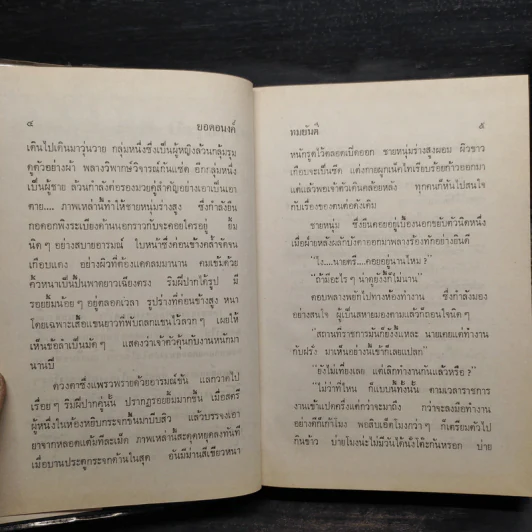 ๔
ยอดอนงค์
เดินไปเดินมาวุ่นวาย กลุ่มหนึ่งซึ่งเป็นผู้หญิงล้วนกลุ้มรุม
ดูตัวอย่างผ้า พลางวิพากษ์วิจารณ์กันแซ่ด อีกกลุ่มหนึ่ง
เป็นผู้ชาย ล้วนกำลังต่อรองมวยคู่สำคัญอย่างเอาเป็นเอา
ตาย.... ภาพเหล่านี้ทำให้ชายหนุ่มร่างสูง ซึ่งกำลังยืน
กอดอกพิงระเบียงด้านนอกราวกับจะคอยใครอยู่ ยิ้ม
นิดๆ อย่างสบายอารมณ์ ใบหน้าซึ่งค่อนข้างคล้ำจัดจน
เกือบแดง อย่างผิวที่ต้องแดดลมมานาน คมเข้มด้วย
คิ้วหนาเป็นปื้นพาดยาวเฉียงตรง ริมฝีปากได้รูป มี
รอยยิ้มน้อยๆ อยู่ตลอดเวลา รูปร่างที่ค่อนข้างสูง หนา
โดยเฉพาะเสื้อแขนยาวที่พับถลกแขนไว้ลวกๆ เผยให้
เห็นข้อลำเป็นมัดๆ แสดงว่าเจ้าตัวคุ้นกับงานหนักมา
นานปี
ดวงตาซึ่งแพรวพราวด้วยอารมณ์ขัน แลกวาดไป
เรื่อยๆ ริมฝีปากคู่นั้น ปรากฏรอยยิ้มมากขึ้น เมื่อสตรี
ผู้หนึ่งในห้องหยิบกระจกขึ้นมาบีบสิว แล้วบรรจงเอา
ยาจากหลอดแต้มทีละเม็ด ภาพเหล่านี้สะดุดหยุดลงทันที
เมื่อบานประตูกระจกด้านในสุด อันมีม่านสีเขียวหนา
ทมยันตี
๕
หนักรูดไว้ตลอดเปิดออก ชายหนุ่มร่างสูงผอม ผิวขาว
เกือบจะเป็นซีด แต่งกายผูกเน็คไทเรียบร้อยก้าวออกมา
แต่แล้วพอเจ้าตัวเดินคล้อยหลัง ทุกคนก็หันไปสนใจ
กับเรื่องของตนต่อดังเดิม
ชายหนุ่ม ซึ่งยืนคอยอยู่เบื้องนอกขยับตัวนิดหนึ่ง
เมื่อฝ่ายหลังผลักบังตาออกมาพลางร้องทักอย่างยินดี
“ไง....นายตรี....คอยอยู่นานไหม ?”
“ถ้ามีอะไรๆ น่าดูยังงี้ก็ไม่นาน”
ตอบพลางพยักไปทางห้องทำงาน ซึ่งกำลังมอง
อย่างสนใจ ผู้เป็นสหายมองตามแล้วก็ถอนใจนิดๆ
“สถานที่ราชการมันก็ยังงี้แหละ นายเคยแต่ทำงาน
กับฝรั่ง มาเห็นอย่างนี้เข้าก็เลยแปลก”
“ยังไม่เที่ยงเลย แต่เลิกทำงานกันแล้วหรือ ?”
“ไม่ว่าที่ไหน ก็แบบนี้ทั้งนั้น ตามเวลาราชการ
งานเข้าแปดครึ่งแต่กว่าจะมาถึง กว่าจะลงมือทำงาน
อย่างดีก็เก้าโมง พอสิบเอ็ดโมงกว่าๆ ก็เตรียมตัวไป
กินข้าว บ่ายโมงน่ะไม่มีวันได้นั่งโต๊ะกันหรอก บ่าย